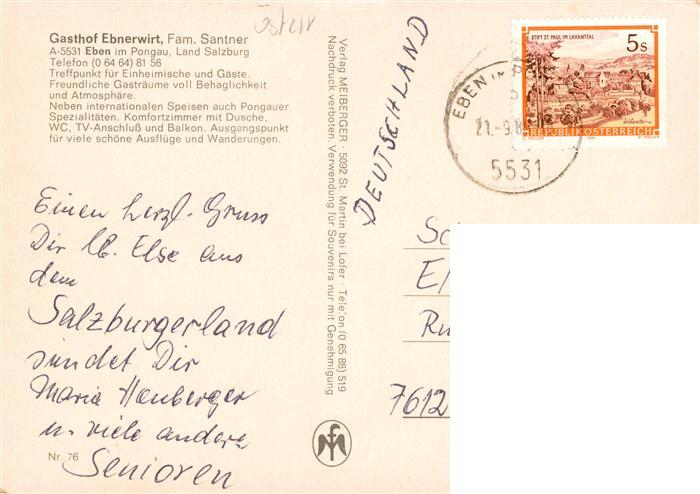 Österr
Gasthof Ebnerwirt, Fam. Santner
A-5531 Eben im Pongau, Land Salzburg
Telefon (0 64 64) 81 56
Treffpunkt für Einheimische und Gäste.
Freundliche Gasträume voll Behaglichkeit
und Atmosphäre.
Neben internationalen Speisen auch Pongauer
Spezialitäten. Komfortzimmer mit Dusche,
WC, TV-Anschluß und Balkon. Ausgangspunkt
für viele schöne Ausflüge und Wanderungen.
Einen herzl. Gruss
Dir lb. Else aus
dem
Salzburgerland
sendet Dir
Maria Hauberger
u. viele andere
Senioren
Nr. 76
Verlag MEIBERGER · 5092 St. Martin bei Lofer · Telefon (0 65 88) 519
Nachdruck verboten. Verwendung für Souvenirs nur mit Genehmigung
DEUTSCHLAND
STIFT ST. PAUL IM LAVANTTAL
5 S
REPUBLIK ÖSTERREICH
EBEN IM
21.-9.8
5531
7612